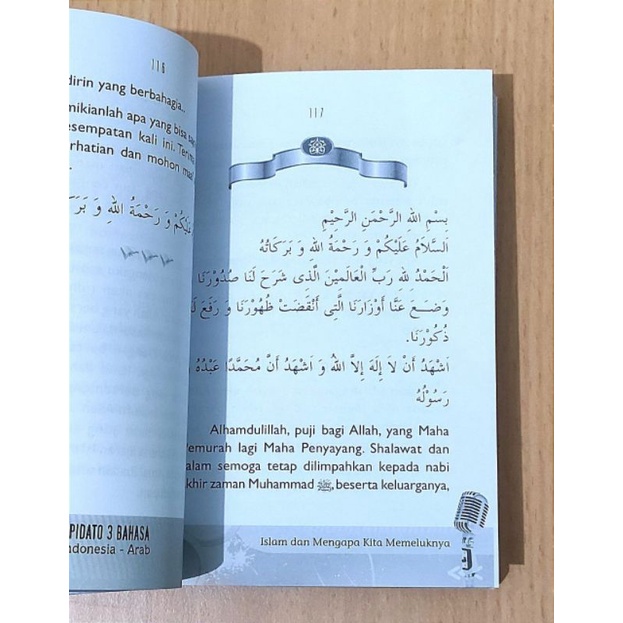 116
dirin yang berbahagia..
mikianlah apa yang bisa
esempatan kali ini.
rhatian dan mohon
عَلَيْكُمْ وَ رَحْمَةُ اللهِ وَ
PIDATO 3 BAHASA
ndonesia - Arab
117
بِسْمِ اللهِ الرَّحْمَنِ الرَّحِيْمِ
اَلسَّلَامُ عَلَيْكُمْ وَ رَحْمَةُ اللهِ وَ بَرَكَاتُهُ
اَلْحَمْدُ لِلهِ رَبِّ الْعَالَمِيْنَ الَّذِى شَرَحَ لَنَا صُدُوْرَنَا
وَضَعَ عَنَّا أَوْزَارَنَا الَّتِى أَنْقَضَتْ ظُهُوْرَنَا وَ رَفَعَ
ذُكُوْرَنَا.
اَشْهَدُ اَنْ لاَ إِلَهَ إِلاَّ اللهُ وَ اَشْهَدُ اَنَّ مُحَمَّدًا عَبْدُهُ
رَسُوْلُهُ
Alhamdulillah, puji bagi Allah, yang Maha
Pemurah lagi Maha Penyayang. Shalawat dan
alam semoga tetap dilimpahkan kepada nabi
khir zaman Muhammad ﷺ, beserta keluarganya,
Islam dan Mengapa Kita Memeluknya